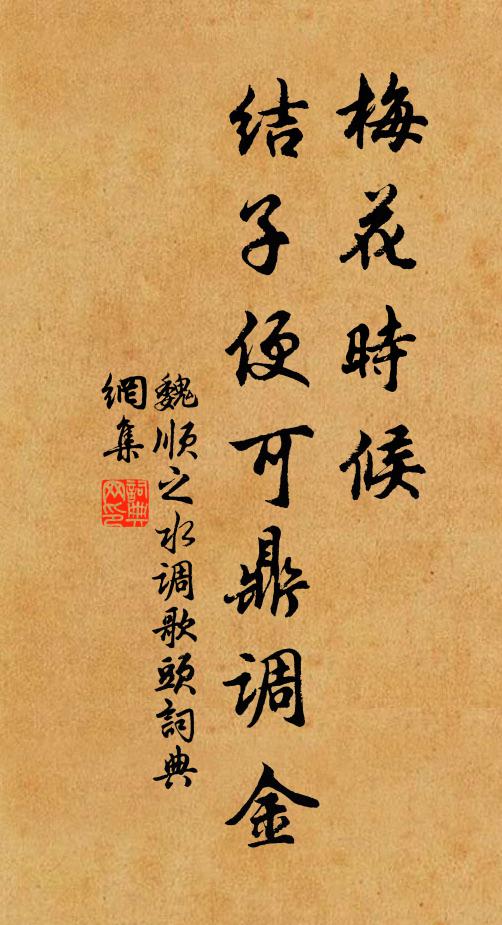 梅花時候
结子便可鼎调金
魏顺之水调歌頭詞典
網集
詞典
网印